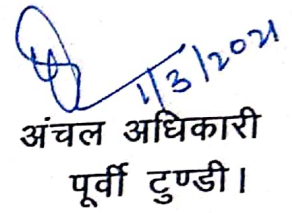 1/3/2021
अंचल अधिकारी
पूर्वी टुण्डी।